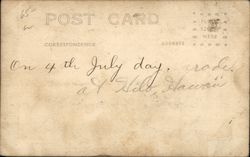 POST CARD
CORRESPONDENCE
ADDRESS
On 4th July day.
at Hilo, Hawaii